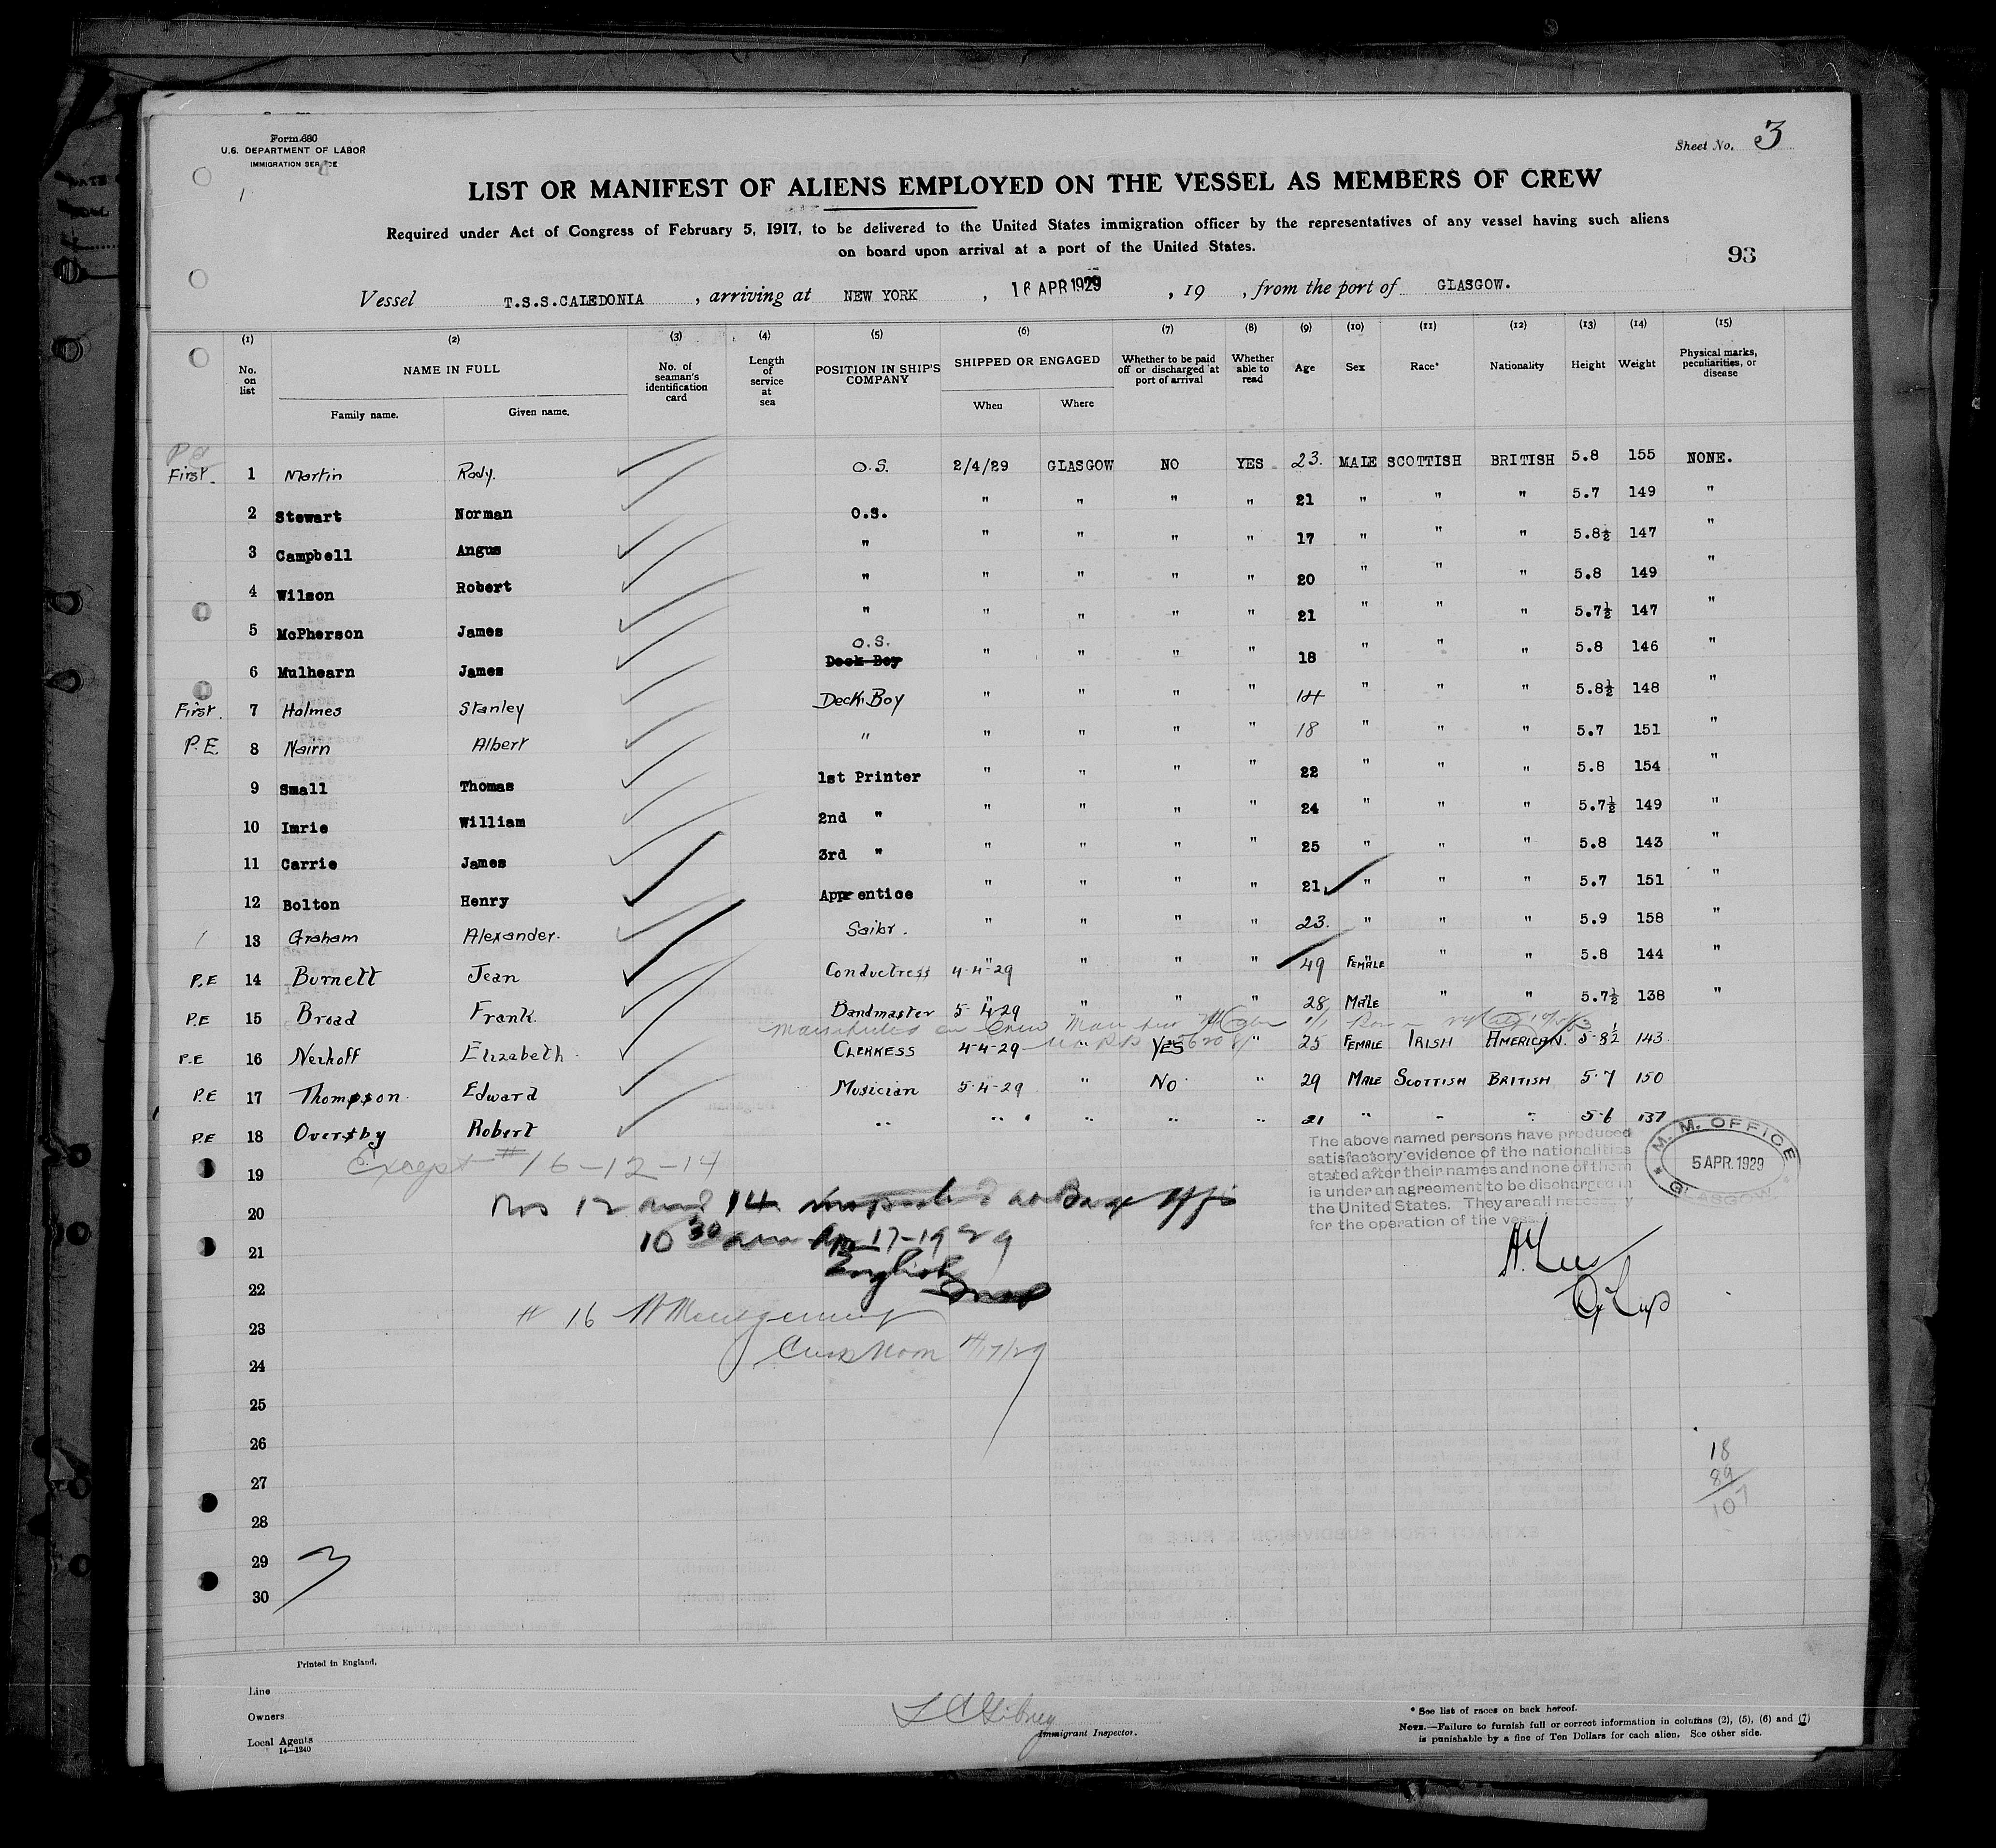 Form 680
U.S. DEPARTMENT OF LABOR
IMMIGRATION SERVICE
Sheet No. 3
LIST OR MANIFEST OF ALIENS EMPLOYED ON THE VESSEL AS MEMBERS OF CREW
Required under Act of Congress of February 5, 1917, to be delivered to the United States immigration officer by the representatives of any vessel having such aliens
on board upon arrival at a port of the United States.
93
Vessel T.S.S.CALEDONIA , arriving at NEW YORK , 16 APR 1929 , 19 , from the port of GLASGOW.
(1) (2) (3) (4) (5) (6) (7) (8) (9) (10) (11) (12) (13) (14) (15)
No. on list NAME IN FULL No. of seaman's identification card Length of service at sea POSITION IN SHIP'S COMPANY SHIPPED OR ENGAGED Whether to be paid off or discharged at port of arrival Whether able to read Age Sex Race* Nationality Height Weight Physical marks, peculiarities, or disease
Family name. Given name. When Where
First. 1 Martin Rody. O.S. 2/4/29 GLASGOW NO YES 23. MALE SCOTTISH BRITISH 5.8 155 NONE.
2 Stewart Norman O.S. " " " " 21 " " " 5.7 149 "
3 Campbell Angus " " " " " 17 " " " 5.8½ 147 "
4 Wilson Robert " " " " " 20 " " " 5.8 149 "
5 McPherson James " " " " " 21 " " " 5.7½ 147 "
6 Mulhearn James O.S. Deck Boy " " " " 18 " " " 5.8 146 "
First. 7 Holmes Stanley Deck Boy " " " " 14 " " " 5.8½ 148 "
P.E. 8 Nairn Albert " " " " " 18 " " " 5.7 151 "
9 Small Thomas 1st Printer " " " " 22 " " " 5.8 154 "
10 Imrie William 2nd " " " " " 24 " " " 5.7½ 149 "
11 Carrie James 3rd " " " " " 25 " " " 5.8 143 "
12 Bolton Henry Apprentice " " " " 21 " " " 5.7 151 "
13 Graham Alexander. Sailor. " " " " 23. " " " 5.9 158 "
P.E 14 Burnett Jean Conductress 4-4-29 " " " 49 FEMALE " " 5.8 144 "
P.E 15 Broad Frank. Bandmaster 5-4-29 " " " 28 MALE " " 5.7½ 138 "
P.E 16 Nerhoff Elizabeth. CLERKESS 4-4-29 " YES " 25 FEMALE IRISH AMERICAN. 5-8½ 143
P.E 17 Thompson. Edward Musician 5-4-29 " No " 29 MALE SCOTTISH BRITISH 5-7 150
P.E 18 Oversby Robert " " " " " 21 " " " 5-6 137
19 Except # 16-12-14
20 Nos 12 and 14
21 10 30 am Apr 17-1929
English
22
23 # 16
24 4/17/29
25
26
27
28
29
30
3
The above named persons have produced
satisfactory evidence of the nationalities
stated after their names and none of them
is under an agreement to be discharged in
the United States. They are all necessary
for the operation of the vessel.
M. M. OFFICE
5 APR. 1929
GLASGOW
18
89
107
Printed in England.
Line
Owners
Local Agents
14—1240
Immigrant Inspector.
* See list of races on back hereof.
NOTE.—Failure to furnish full or correct information in columns (2), (5), (6) and (7)
is punishable by a fine of Ten Dollars for each alien. See other side.